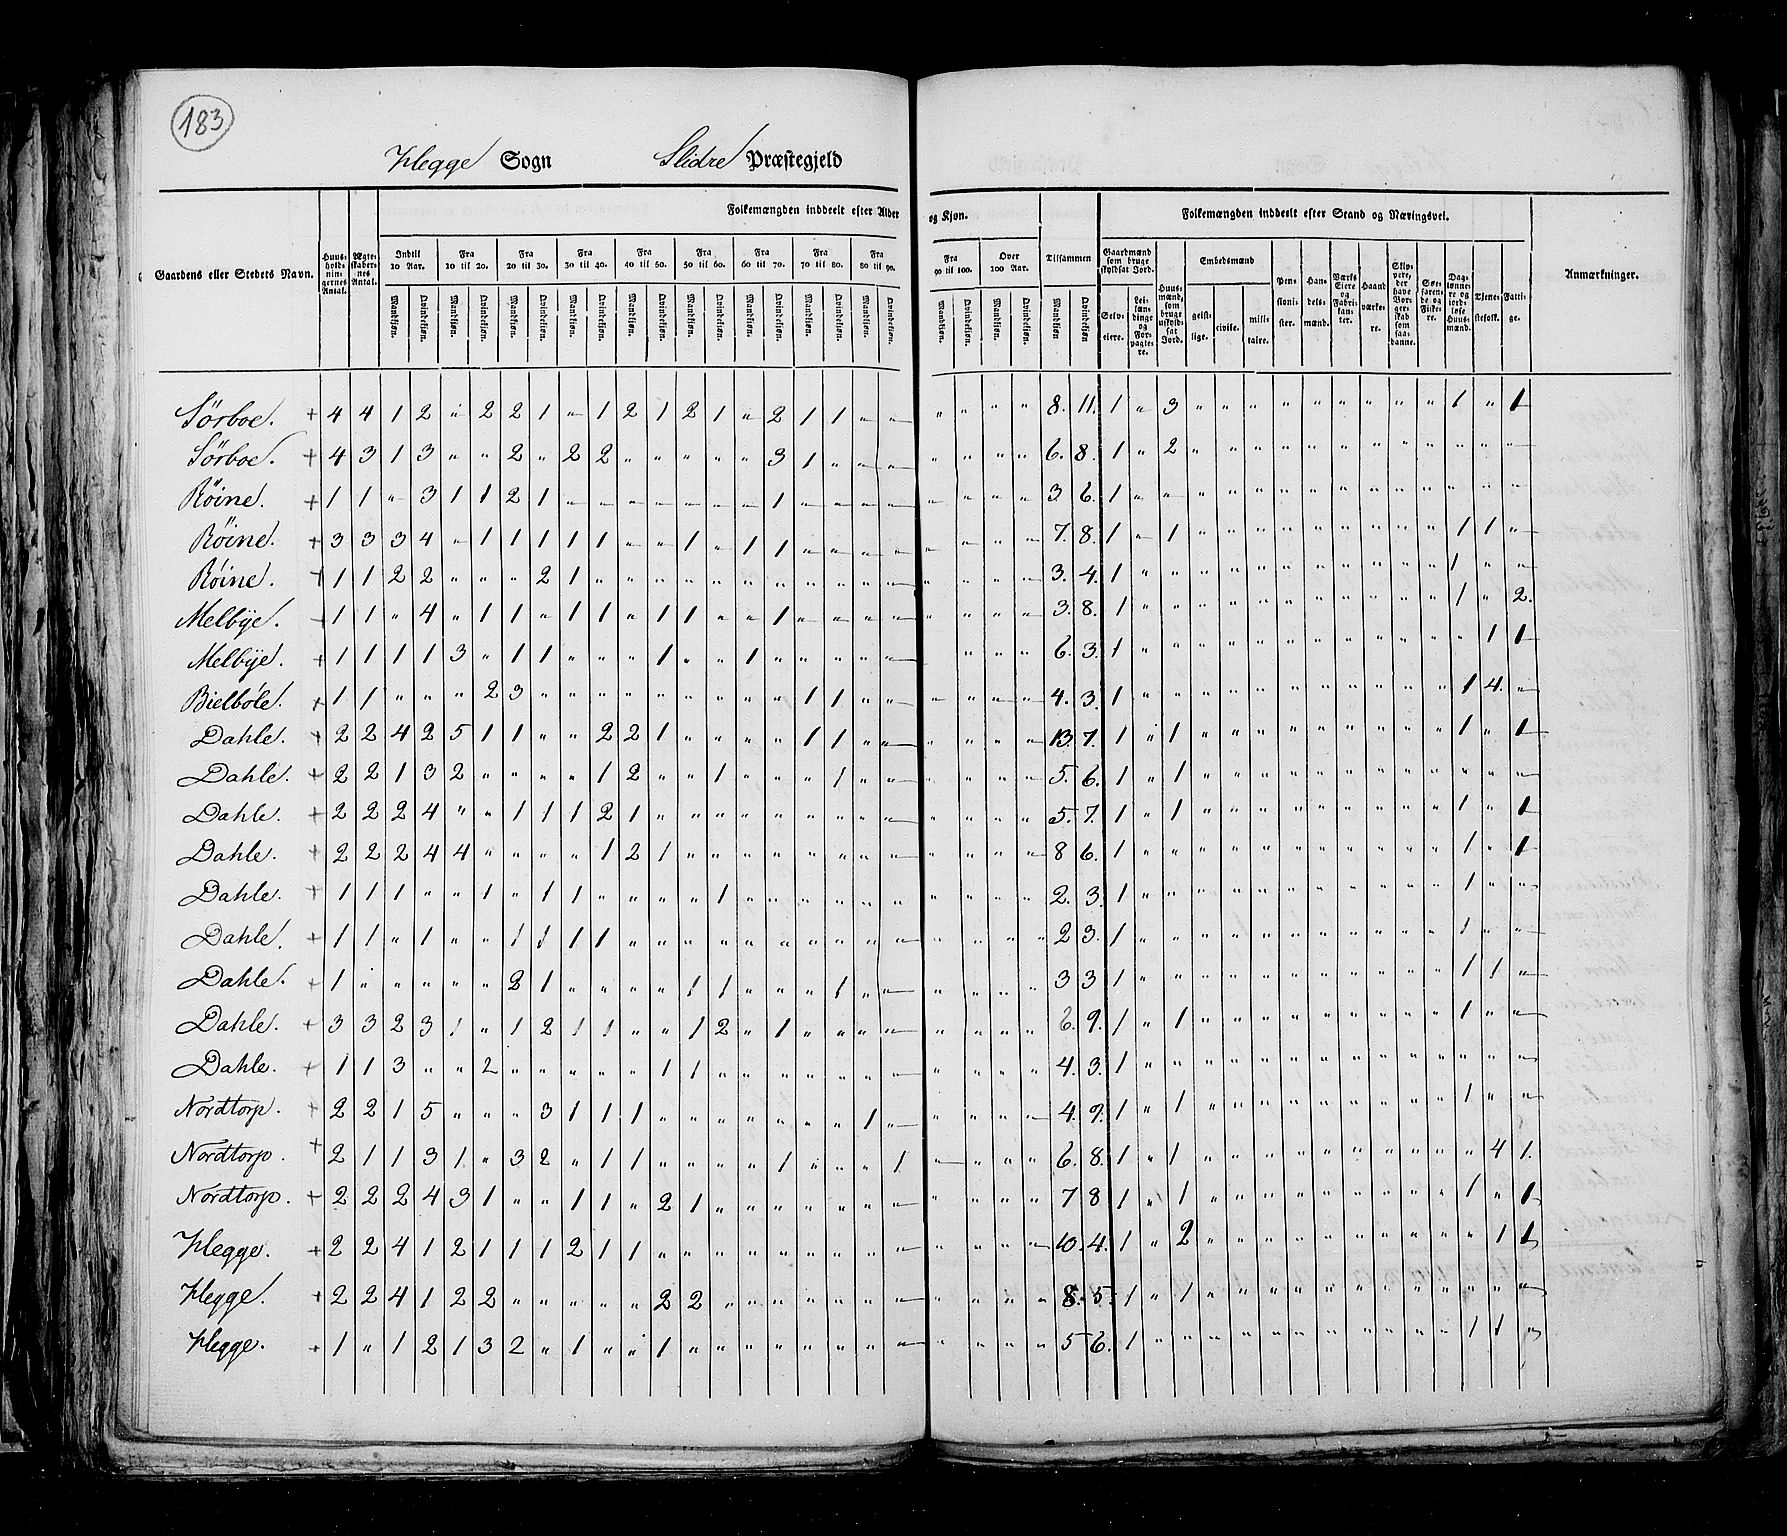 183
Hegge Sogn Slidre Præstegjeld
Gaardens eller Stedets Navn.
Huusholdningernes Antal.
Ægteskabernes Antal.
Folkemængden inddeelt efter Alder og Kjøn.
Indtil 10 Aar. Fra 10 til 20. Fra 20 til 30. Fra 30 til 40. Fra 40 til 50. Fra 50 til 60. Fra 60 til 70. Fra 70 til 80. Fra 80 til 90. Fra 90 til 100. Over 100 Aar. Tilsammen
Mandkjøn. Qvindekjøn. Mandkjøn. Qvindekjøn. Mandkjøn. Qvindekjøn. Mandkjøn. Qvindekjøn. Mandkjøn. Qvindekjøn. Mandkjøn. Qvindekjøn. Mandkjøn. Qvindekjøn. Mandkjøn. Qvindekjøn. Mandkjøn. Qvindekjøn. Mandkjøn. Qvindekjøn. Mandkjøn. Qvindekjøn. Mandkjøn Qvindekjøn
Folkemængden inddeelt efter Stand og Næringsvei.
Gaardmænd som bruge skyldsat Jord.
Selveiere. Leilændinge og Forpagtere.
Huusmænd, som bruge uskyldsat Jord.
Embedsmænd
geistlige. civile. militaire.
Pensionister.
Handelsmænd.
Værks Eiere og Fabrikanter.
Haandværkere.
Skippere, der have Borgerskab som saadanne.
Søefarende og Fiskere.
Daglønnere og jordløse Huusmænd.
Tjenestefolk.
Fattige.
Anmærkninger.
Sörboe. + 4 4 1 2 " 2 2 1 " 1 2 1 2 1 " 2 1 1 " " " " " " 8. 11. 1 " 3 " " " " " " " " " 1 " 1
Sörboe. + 4 3 1 3 " " 2 " 2 2 " " " " " 3 1 " " " " " " " 6. 8. 1 " 2 " " " " " " " " " " " "
Röine. + 1 1 " 3 1 1 2 1 " " " " " " " 1 " " " " " " " " 3 6. 1 " " " " " " " " " " " " " "
Röine. + 3 3 3 4 " 1 1 1 1 1 " " 1 " 1 1 " " " " " " " " 7. 8. 1 " 1 " " " " " " " " " 1 1 "
Röine. + 1 1 2 2 " " " 2 1 " " " " " " " " " " " " " " " 3. 4. 1 " " " " " " " " " " " 1 " "
Melbye. + 1 1 " 4 " 1 1 " 1 1 " 1 1 " " 1 " " " " " " " " 3. 8. 1 " " " " " " " " " " " 1 " 2.
Melbye. + 1 1 1 1 3 " 1 1 " " " 1 " " 1 " " " " " " " " 6. 3. 1 " " " " " " " " " " " " 1 1
Bielböle. + 1 1 " " " 2 3 " " " " " " " " " 1 1 " " " " " " 4. 3. 1 " " " " " " " " " " " 1 4. "
Dahle. + 2 2 4 2 5 1 1 " " 2 2 1 " " " " 1 1 " " " " " " 13. 7. 1 " 1 " " " " " " " " " 1 " 1
Dahle. + 2 2 1 3 2 " " " " 1 2 " " 1 " " " 1 " " " " " " 5. 6. 1 " 1 " " " " " " " " " " " "
Dahle. + 2 2 2 4 " " 1 1 1 2 1 " " " " " " " " " " " " " 5. 7. 1 " 1 " " " " " " " " " 1 " 1
Dahle. + 2 2 2 4 4 " " " " 1 2 1 " " " " " " " " " " " " 8 6. 1 " " " " " " " " " " " 1 " 1
Dahle. + 1 1 1 " " 1 " 1 1 " " " " 1 " " " " " " " " " " 2. 3. 1 " " " " " " " " " " " 1 " "
Dahle. + 1 1 " 1 " " 1 1 1 1 " " " " " " " " " " " " " " 2 3. 1 " " " " " " " " " " " 1 " "
Dahle. + 1 " " " " " 2 1 " " " " 1 1 " " " 1 " " " " " " 3 3 1 " " " " " " " " " " " 1 1 "
Dahle. + 3 3 2 3 1 " 1 2 1 1 " " 1 2 " 1 " " " " " " " " 6. 9. 1 " 1 " " " " " " " " " 1 " "
Dahle. + 1 1 3 " " 2 " " " " " 1 1 " " " " " " " " " " " 4. 3. 1 " " " " " " " " " " " " " "
Nordtorp. + 2 2 1 5 " " " 3 1 1 1 " " " " " " " 1 " " " " " 4. 9. 1 " 1 " " " " " " " " " 1 " "
Nordtorp. + 2 1 1 3 1 " 3 2 " 1 1 " " " " 1 " " " 1 " " " " 6. 8. 1 " 1 " " " " " " " " " " 4 1.
Nordtorp. + 2 2 2 4 3 1 " " 1 1 " 2 1 " " " " " " " " " " " 7 8 1 " 1 " " " " " " " " " 1 " 1
Hegge. + 2 2 4 1 2 1 1 1 2 1 1 " " " " " " " " " " " " " 10. 4. 1 " 2 " " " " " " " " " " 1 1
Hegge. + 2 2 4 1 2 2 " " " " " 2 2 " " " " " " " " " " " 8. 5. 1 " 1 " " " " " " " " " " " "
Hegge. + 1 " 1 2 1 3 2 " 1 " " 1 " " " " " " " " " " " " 5 6. 1 " " " " " " " " " " " 1 1 "